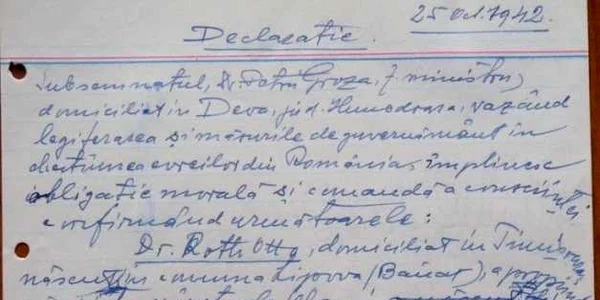 25 Oct. 1942.
Declarație.
Subsemnatul, Dr. Petru Groza, f. ministru,
domiciliat în Deva, jud. Hunedoara, văzând
legiferarea și măsurile de guvernământ în
chestiunea evreilor din România, împlinesc
obligație morală și comandă a conștiinței
confirmând următoarele:
Dr. Roth Otto, domiciliat în Timișoara,
născut în comuna Lipova (Banat), a